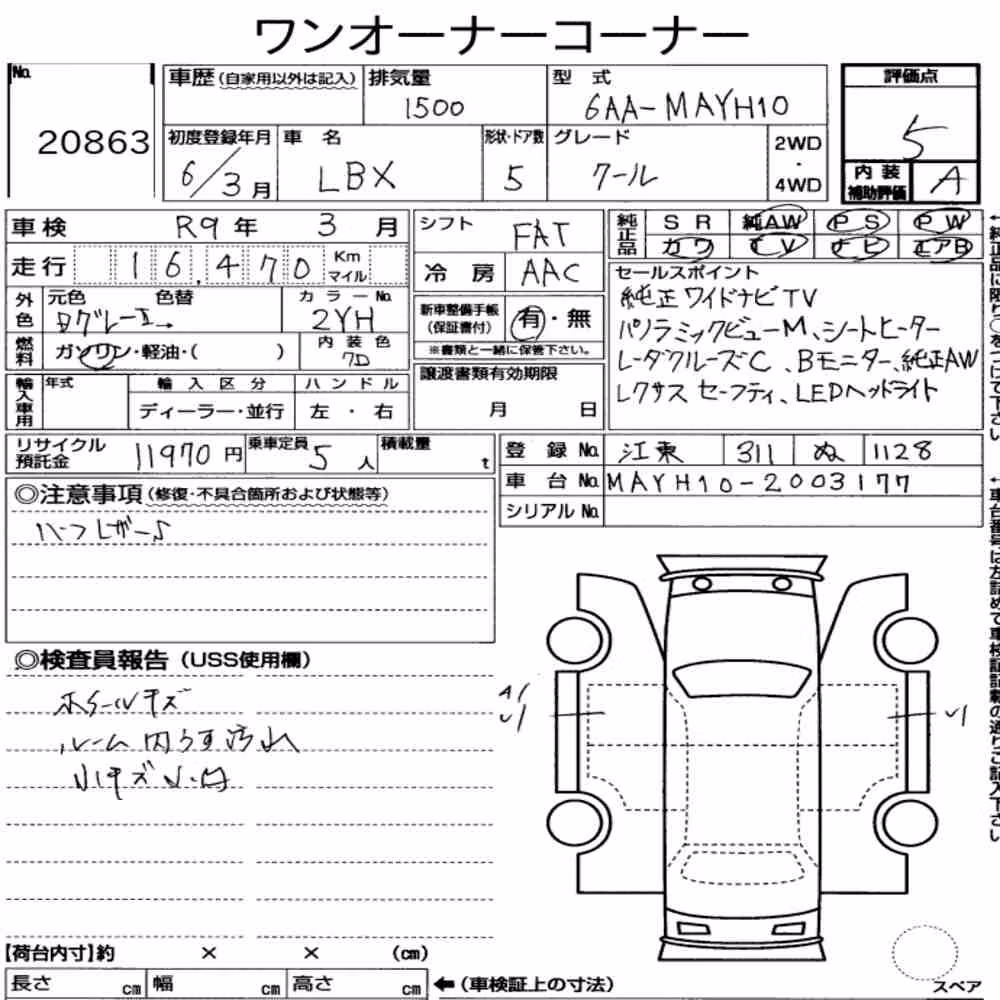 ワンオーナーコーナー
No. 20863
車歴 (自家用以外は記入) 排気量 1500 型式 6AA-MAYH10
初度登録年月 6/3月 車名 LBX 形状・ドア数 5 グレード クール 2WD・4WD
評価点 5
内装補助評価 A
車検 R9年 3月
走行 16,470 Km マイル
外色 元色 色替 カラーNo. 2YH
燃料 ガソリン・軽油・( ) 内装色 7D
輸入車用 年式 輸入区分 ディーラー・並行 ハンドル 左・右
シフト FAT
冷房 AAC
新車整備手帳(保証書付) 有・無
※書類と一緒に保管下さい。
譲渡書類有効期限 月 日
純正品 SR 純AW PS PW
カワ TV ナビ エアB
セールスポイント
純正ワイドナビTV
パノラミックビューM、シートヒーター
レーダクルーズC、Bモニター、純正AW
レクサス セーフティ、LEDヘッドライト
リサイクル預託金 11970円 乗車定員 5人 積載量 t
登録No. 江東 311 ぬ 1128
車台No. MAYH10-2003177
シリアルNo.
◎注意事項(修復・不具合箇所および状態等)
ハーフレザーS
◎検査員報告(USS使用欄)
ホイールキズ
ルーム内うす汚れ
小キズ小凹
A1
U1
U1
【荷台内寸】約 × × (cm)
長さ cm 幅 cm 高さ cm ←(車検証上の寸法)
スペア